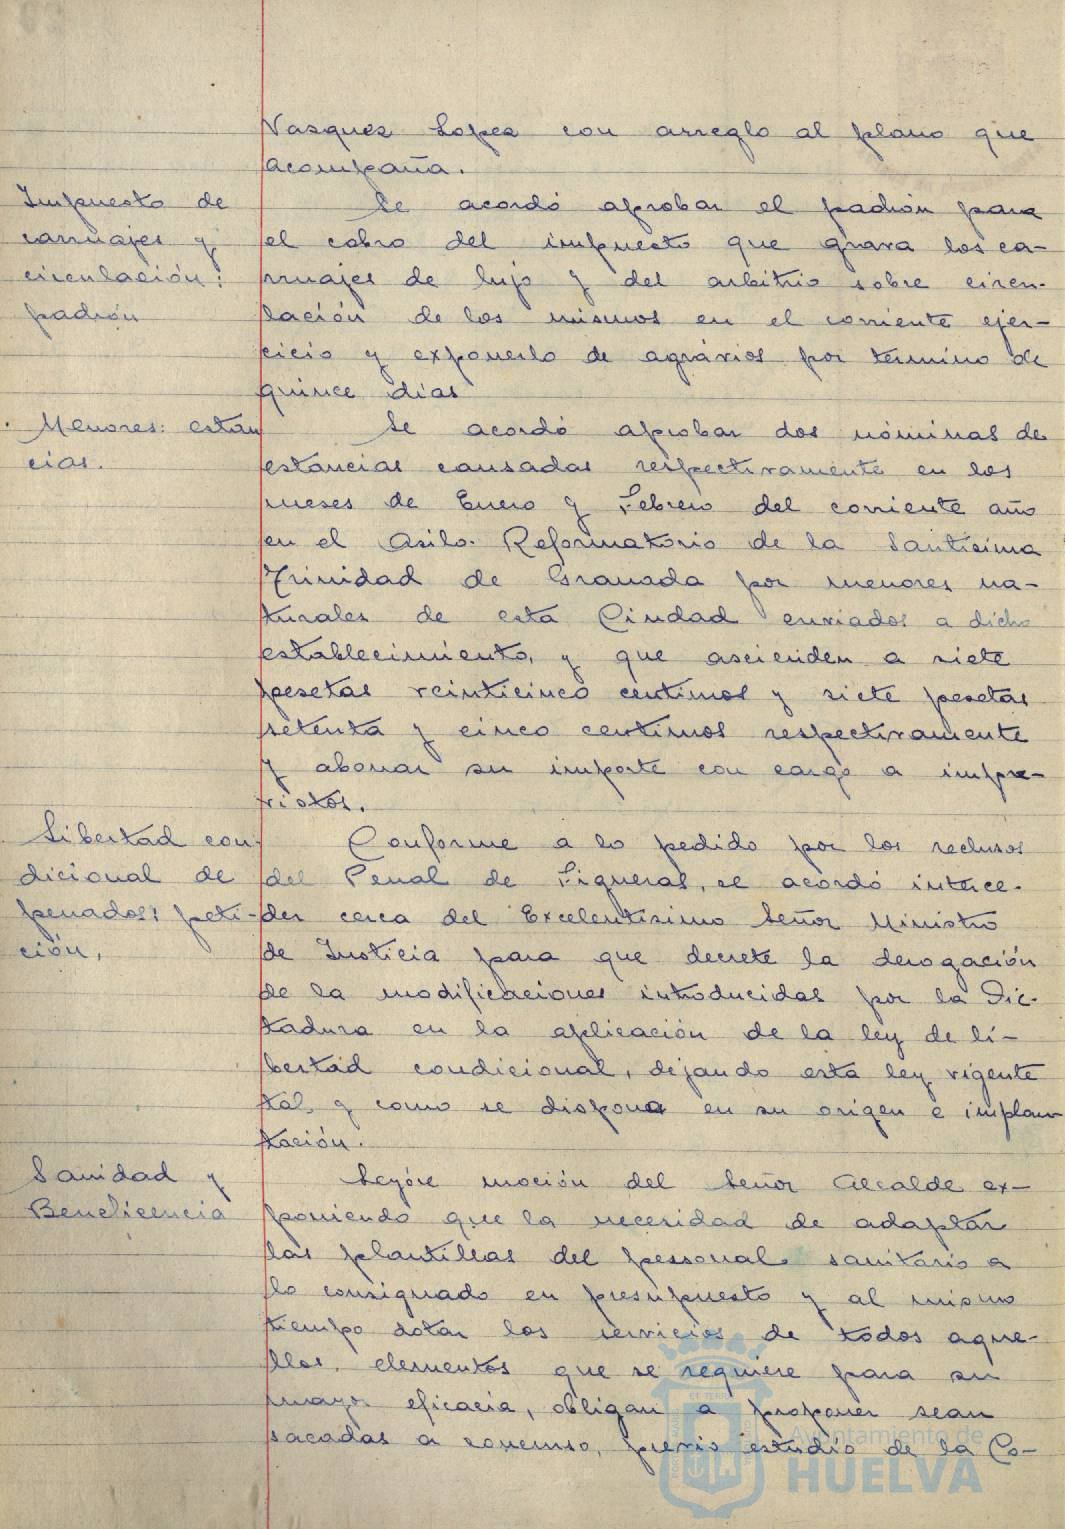 Vasquez Lopez con arreglo al plano que
acompaña.
Impuesto de
carruajes y
circulación:
padrón
Se acordó aprobar el padrón para
el cobro del impuesto que grava los ca-
rruajes de lujo y del arbitrio sobre circu-
lación de los mismos en el corriente ejer-
cicio y exponerlo de agravios por termino de
quince dias
Menores: estan
cias.
Se acordó aprobar dos nóminas de
estancias causadas respectivamente en los
meses de Enero y Febrero del corriente año
en el Asilo-Reformatorio de la Santisima
Trinidad de Granada por menores na-
turales de esta Ciudad enviados a dicho
establecimiento, y que ascienden a siete
pesetas veinticinco centimos y siete pesetas
setenta y cinco centimos respectivamente
y abonar su importe con cargo a impre-
vistos.
Libertad con-
dicional de
penados: peti-
ción.
Conforme a lo pedido por los reclusos
del Penal de Figueras, se acordó interce-
der cerca del Excelentisimo Señor Ministro
de Justicia para que decrete la derogación
de la modificaciones introducidas por la Dic-
tadura en la aplicación de la ley de li-
bertad condicional, dejando esta ley vigente
tal y como se dispona en su origen e implan
tación.
Sanidad y
Beneficencia
Leyóse moción del Señor Alcalde ex-
poniendo que la necesidad de adaptar
las plantillas del personal sanitario a
lo consignado en presupuesto y al mismo
tiempo dotar los servicios de todos aque-
llos elementos que se requiere para su
mayor eficacia, obligan a proponer sean
sacadas a concurso, previo estudio de la Co-
Ayuntamiento de
HUELVA